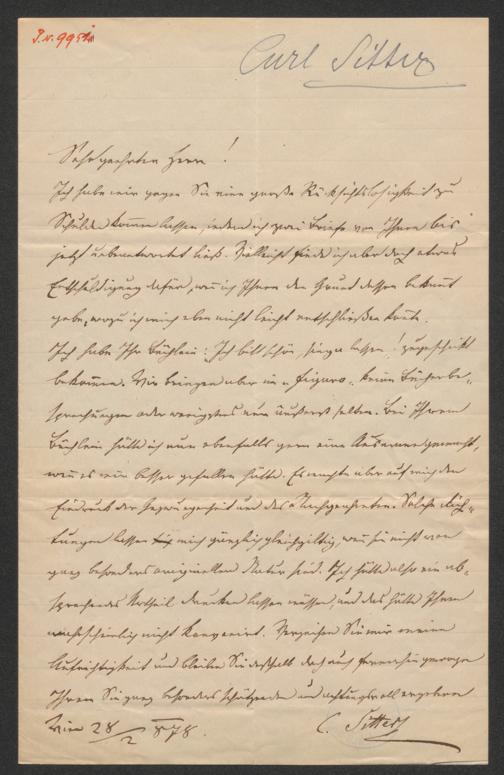 J. N. 995
Carl Sitter
Sehr geehrter Herr!
Ich habe mir gegen Sie eine große Rücksichtslosigkeit zu
Schulden kommen lassen, indem ich zwei Briefe von Ihnen bis
jetzt unbeantwortet ließ. Vielleicht finde ich aber doch etwas
Entschuldigung dafür, wenn ich Ihnen den Grund dessen bekannt
gebe, wozu ich mich eben nicht leicht entschließen konnte.
Ich habe Ihr Büchlein: „Ich bitt' schön, singa lassen!" zugeschickt
bekommen. Wir bringen aber im „Figaro" keine Bücherbe-
sprechungen oder wenigstens nur äußerst selten. Bei Ihrem
Büchlein hätte ich nun ebenfalls gern eine Ausname gemacht,
wenn es mir besser gefallen hätte. Es machte aber auf mich den
Eindruck der Gezwungenheit und des Nachgeahmten. Solche Dich-
tungen lassen mich gänzlich gleichgiltig, wenn sie nicht von
ganz besonders originellem Natur sind. Ich hätte also ein ab-
sprechendes Urtheil drucken lassen müssen, und das hätte Ihnen
wahrscheinlich nicht konvenirt. Verzeihen Sie mir meine
Aufrichtigkeit und bleiben Sie deßhalb doch auch fernerhin gewogen
Ihrem Sie ganz besonders schätzenden und achtungsvoll ergebenen
Wien 28/2 878. C. Sitter